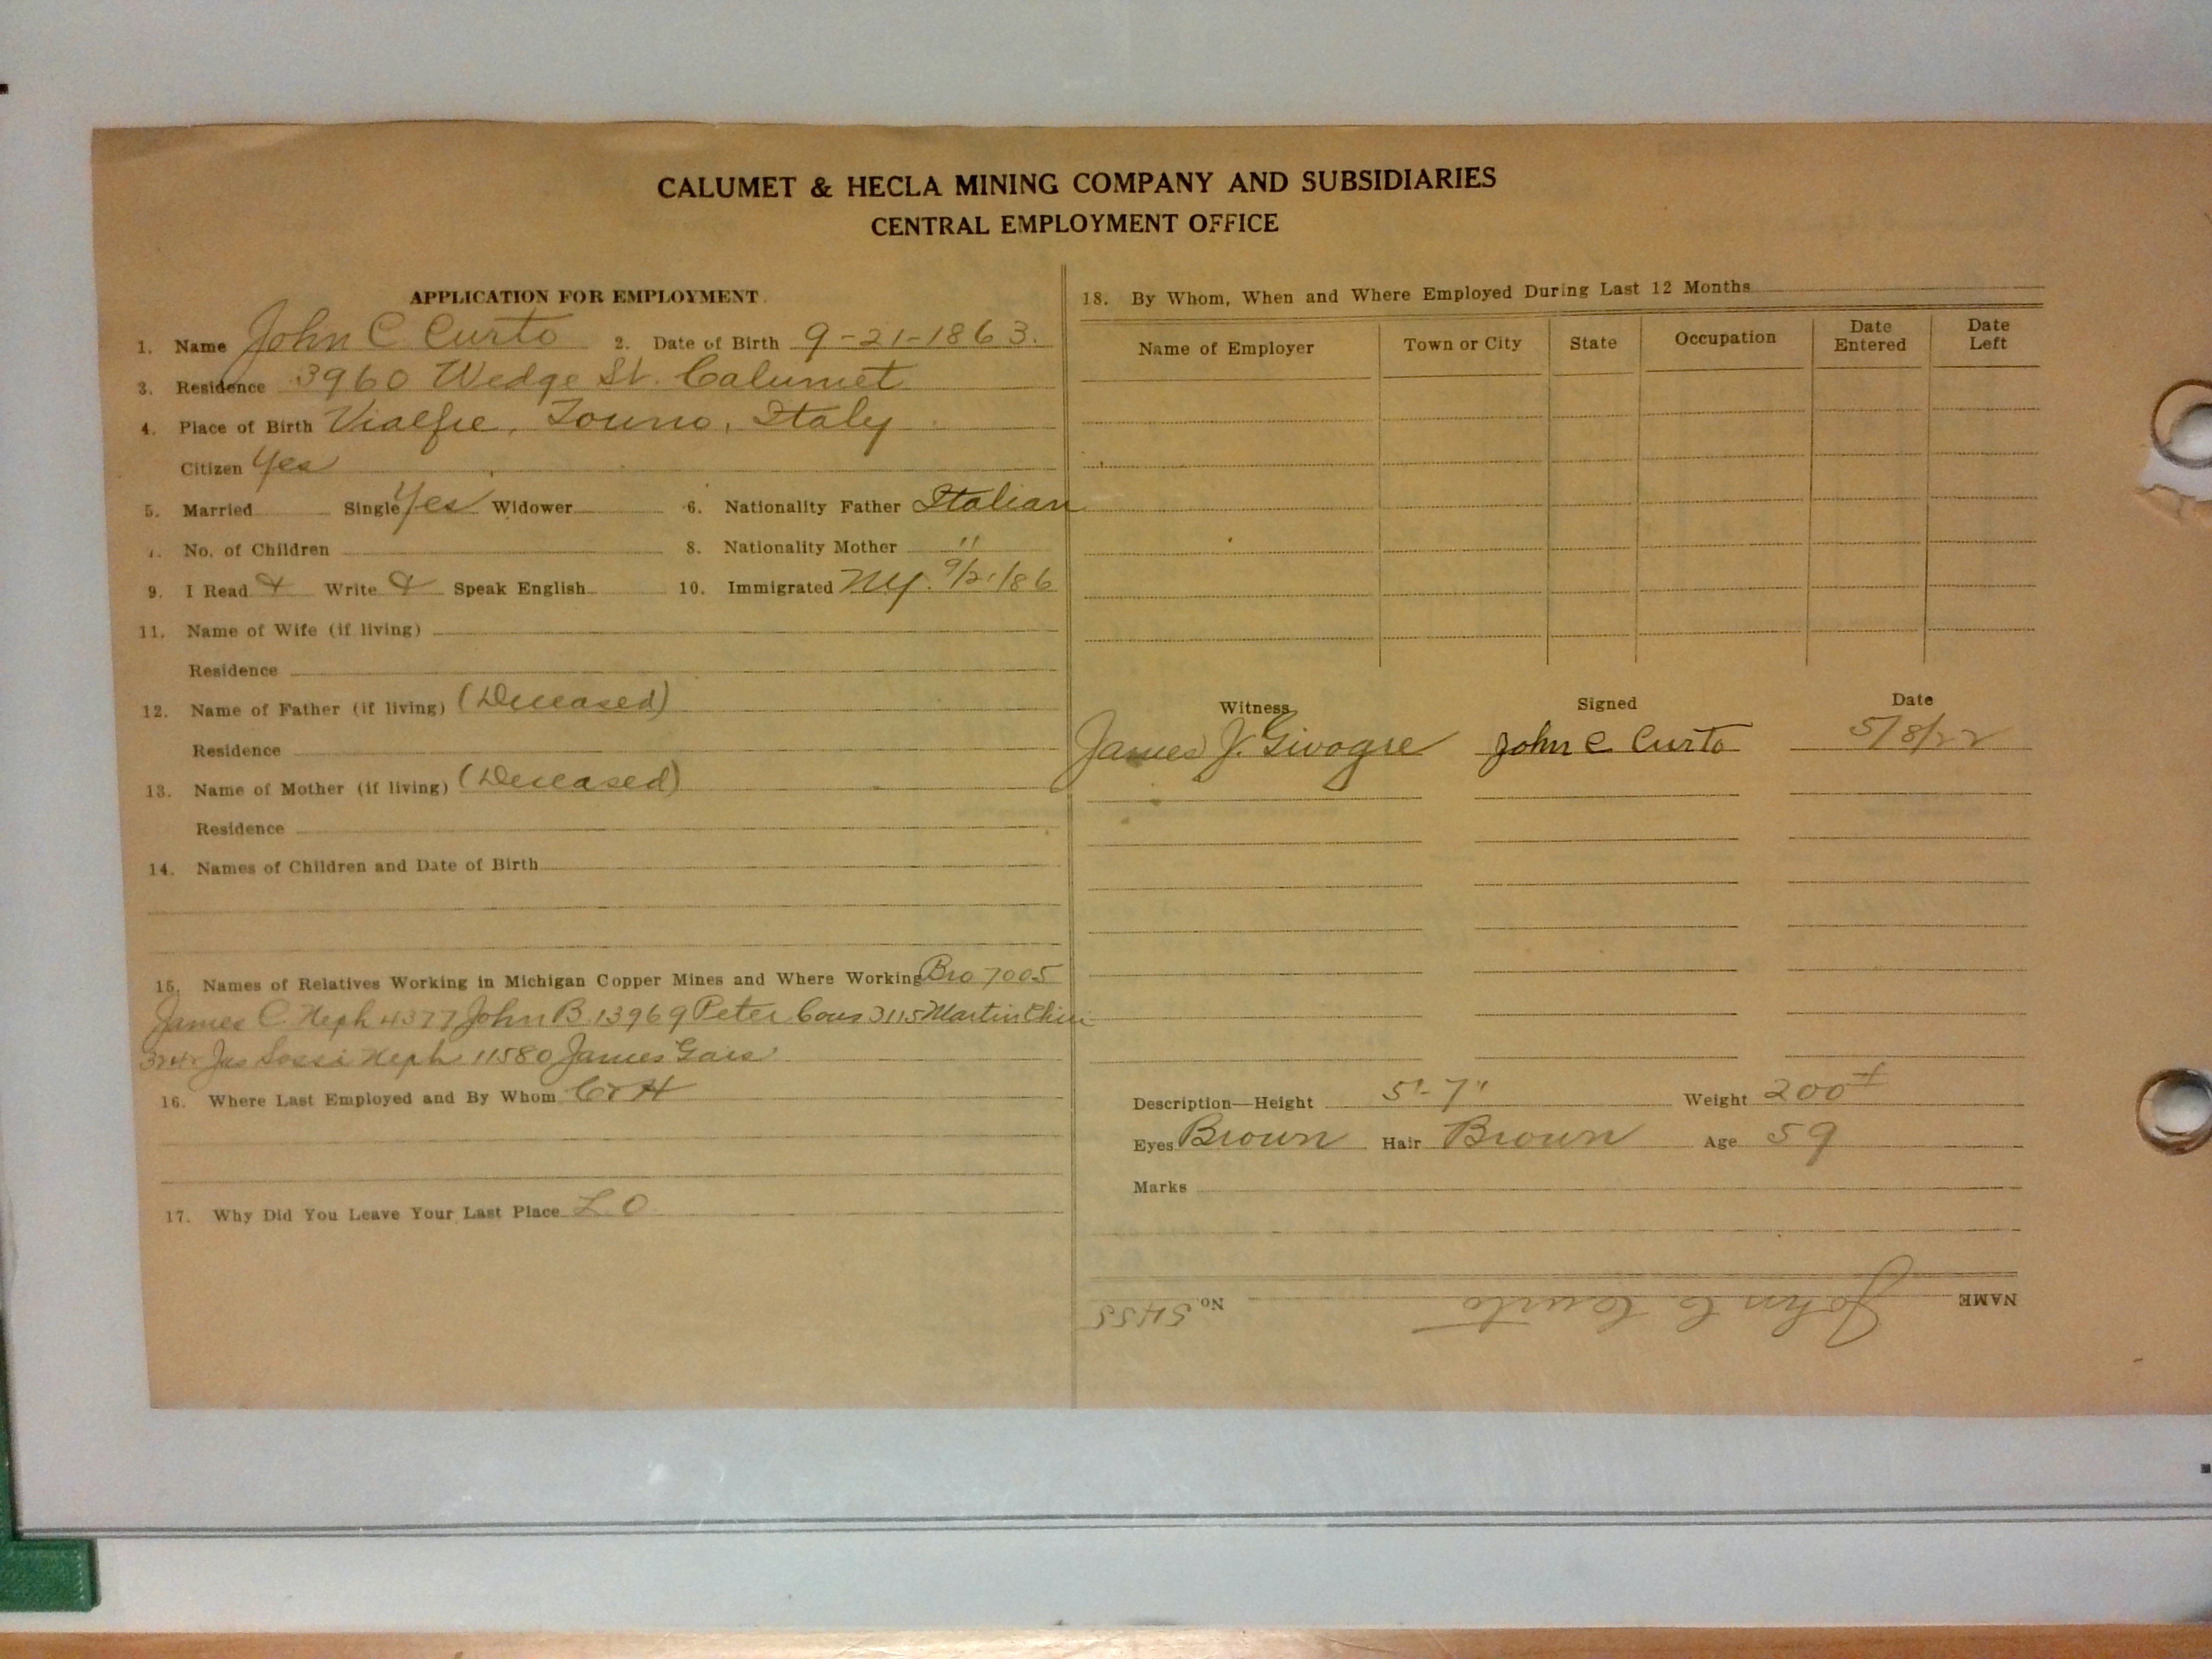 CALUMET & HECLA MINING COMPANY AND SUBSIDIARIES
CENTRAL EMPLOYMENT OFFICE
APPLICATION FOR EMPLOYMENT
1. Name John C Curto 2. Date of Birth 9-21-1863.
3. Residence 3960 Wedge St. Calumet
4. Place of Birth Vialfre, Torino, Italy
Citizen Yes
5. Married Single Yes Widower 6. Nationality Father Italian
No. of Children 8. Nationality Mother "
9. I Read & Write & Speak English 10. Immigrated NY. 9/21/86
11. Name of Wife (if living)
Residence
12. Name of Father (if living) (Deceased)
Residence
13. Name of Mother (if living) (Deceased)
Residence
14. Names of Children and Date of Birth
15. Names of Relatives Working in Michigan Copper Mines and Where Working Bro 7005
James C Neph 4377 John B 13969 Peter Cous 3115 Martin
Jas Neph 11580 James
16. Where Last Employed and By Whom C & H
17. Why Did You Leave Your Last Place L O
18. By Whom, When and Where Employed During Last 12 Months
Name of Employer Town or City State Occupation Date Entered Date Left
Witness Signed Date
James J. John C Curto 5/8/22
Description—Height 5'-7" Weight 200±
Eyes Brown Hair Brown Age 59
Marks
NAME John C. Curto No. 5455